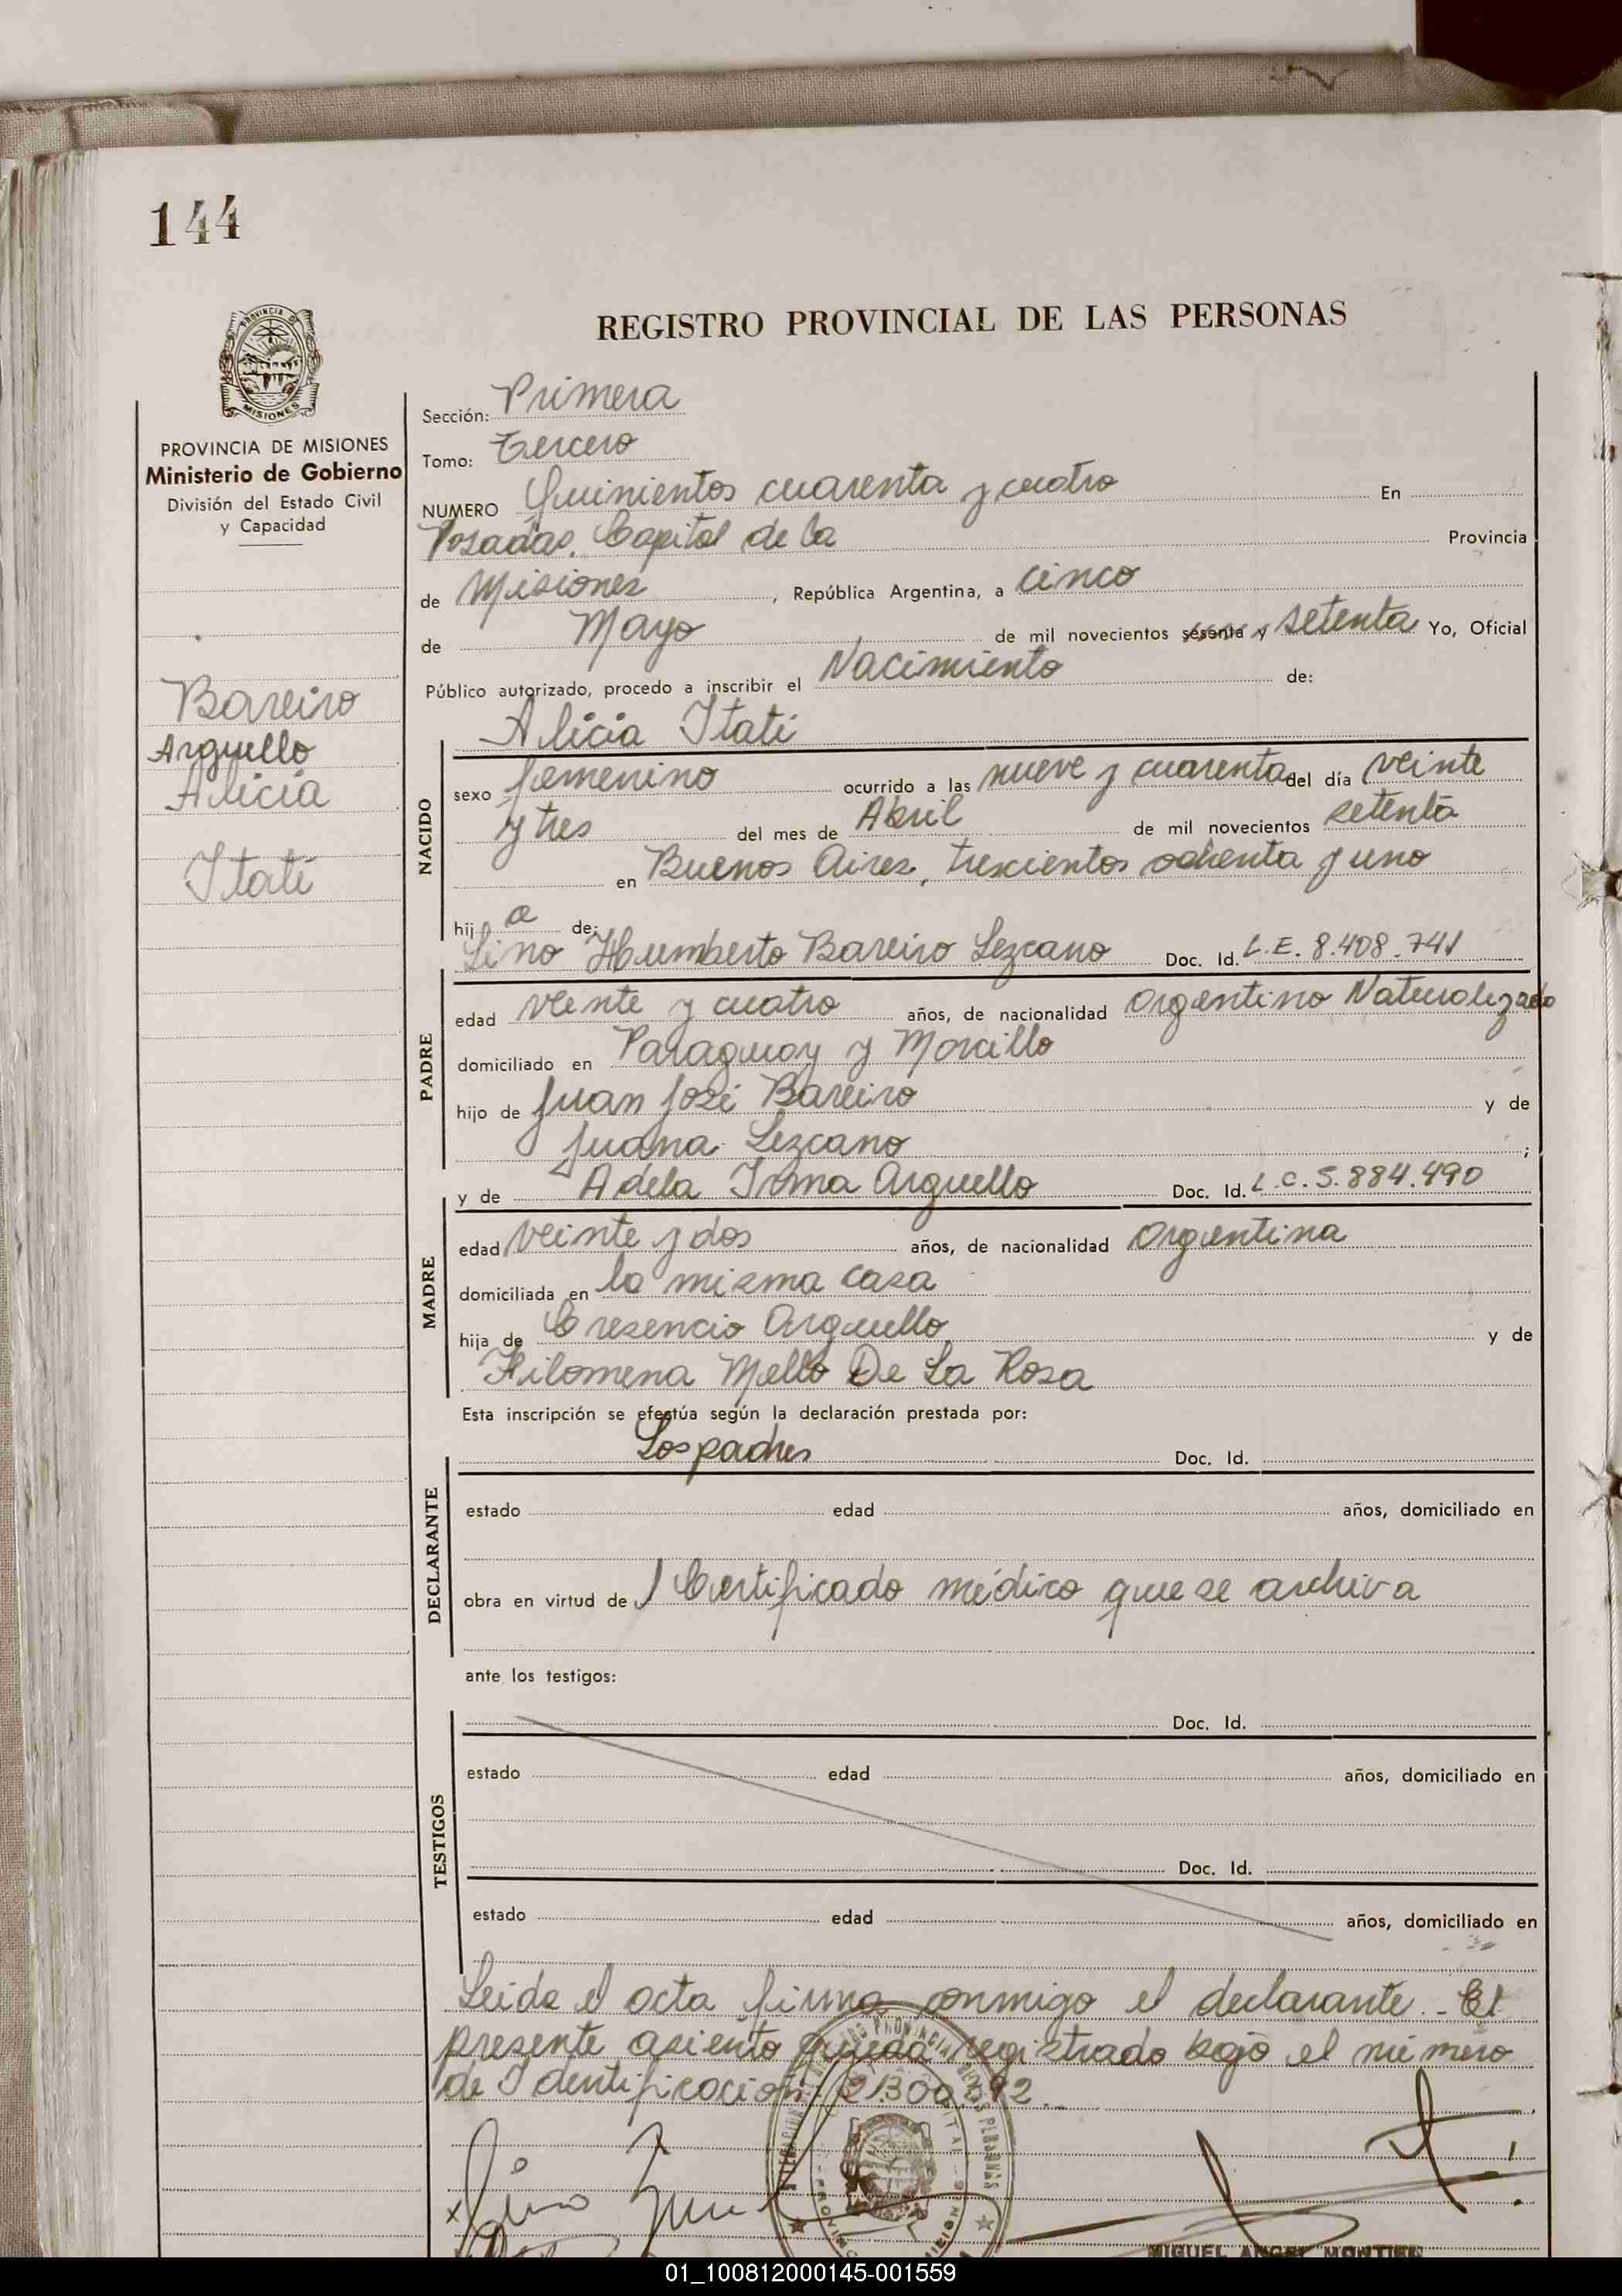 144
PROVINCIA DE
MISIONES
PROVINCIA DE MISIONES
Ministerio de Gobierno
División del Estado Civil
y Capacidad
Bareiro
Arguello
Alicia
Itati
REGISTRO PROVINCIAL DE LAS PERSONAS
Sección: Primera
Tomo: Tercero
NUMERO Quinientos cuarenta y cuatro En
Posadas, Capital de la Provincia
de Misiones, República Argentina, a cinco
de Mayo de mil novecientos sesenta y setenta Yo, Oficial
Público autorizado, procedo a inscribir el Nacimiento de:
Alicia Itati
NACIDO
sexo femenino ocurrido a las nueve y cuarenta del día veinte
y tres del mes de Abril de mil novecientos setenta
en Buenos Aires, trescientos ochenta y uno
hij a de:
Lino Humberto Bareiro Lezcano Doc. Id. L.E. 8.408.741
PADRE
edad veinte y cuatro años, de nacionalidad argentino Naturalizado
domiciliado en Paraguay y Morcillo
hijo de Juan José Bareiro y de
Juana Lezcano ;
y de Adela Irma Arguello Doc. Id. L.C. 5.884.490
MADRE
edad veinte y dos años, de nacionalidad argentina
domiciliada en la misma casa
hija de Cresencio Arguello y de
Filomena Mello De La Rosa
Esta inscripción se efectúa según la declaración prestada por:
Los padres Doc. Id.
DECLARANTE
estado edad años, domiciliado en
obra en virtud de Certificado médico que se archiva
ante los testigos:
TESTIGOS
Doc. Id.
estado edad años, domiciliado en
Doc. Id.
estado edad años, domiciliado en
Leida el acta firma conmigo el declarante.- El
presente asiento queda registrado bajo el número
de Identificación
Lino
MIGUEL ANGEL MONTIEL
01_100812000145-001559